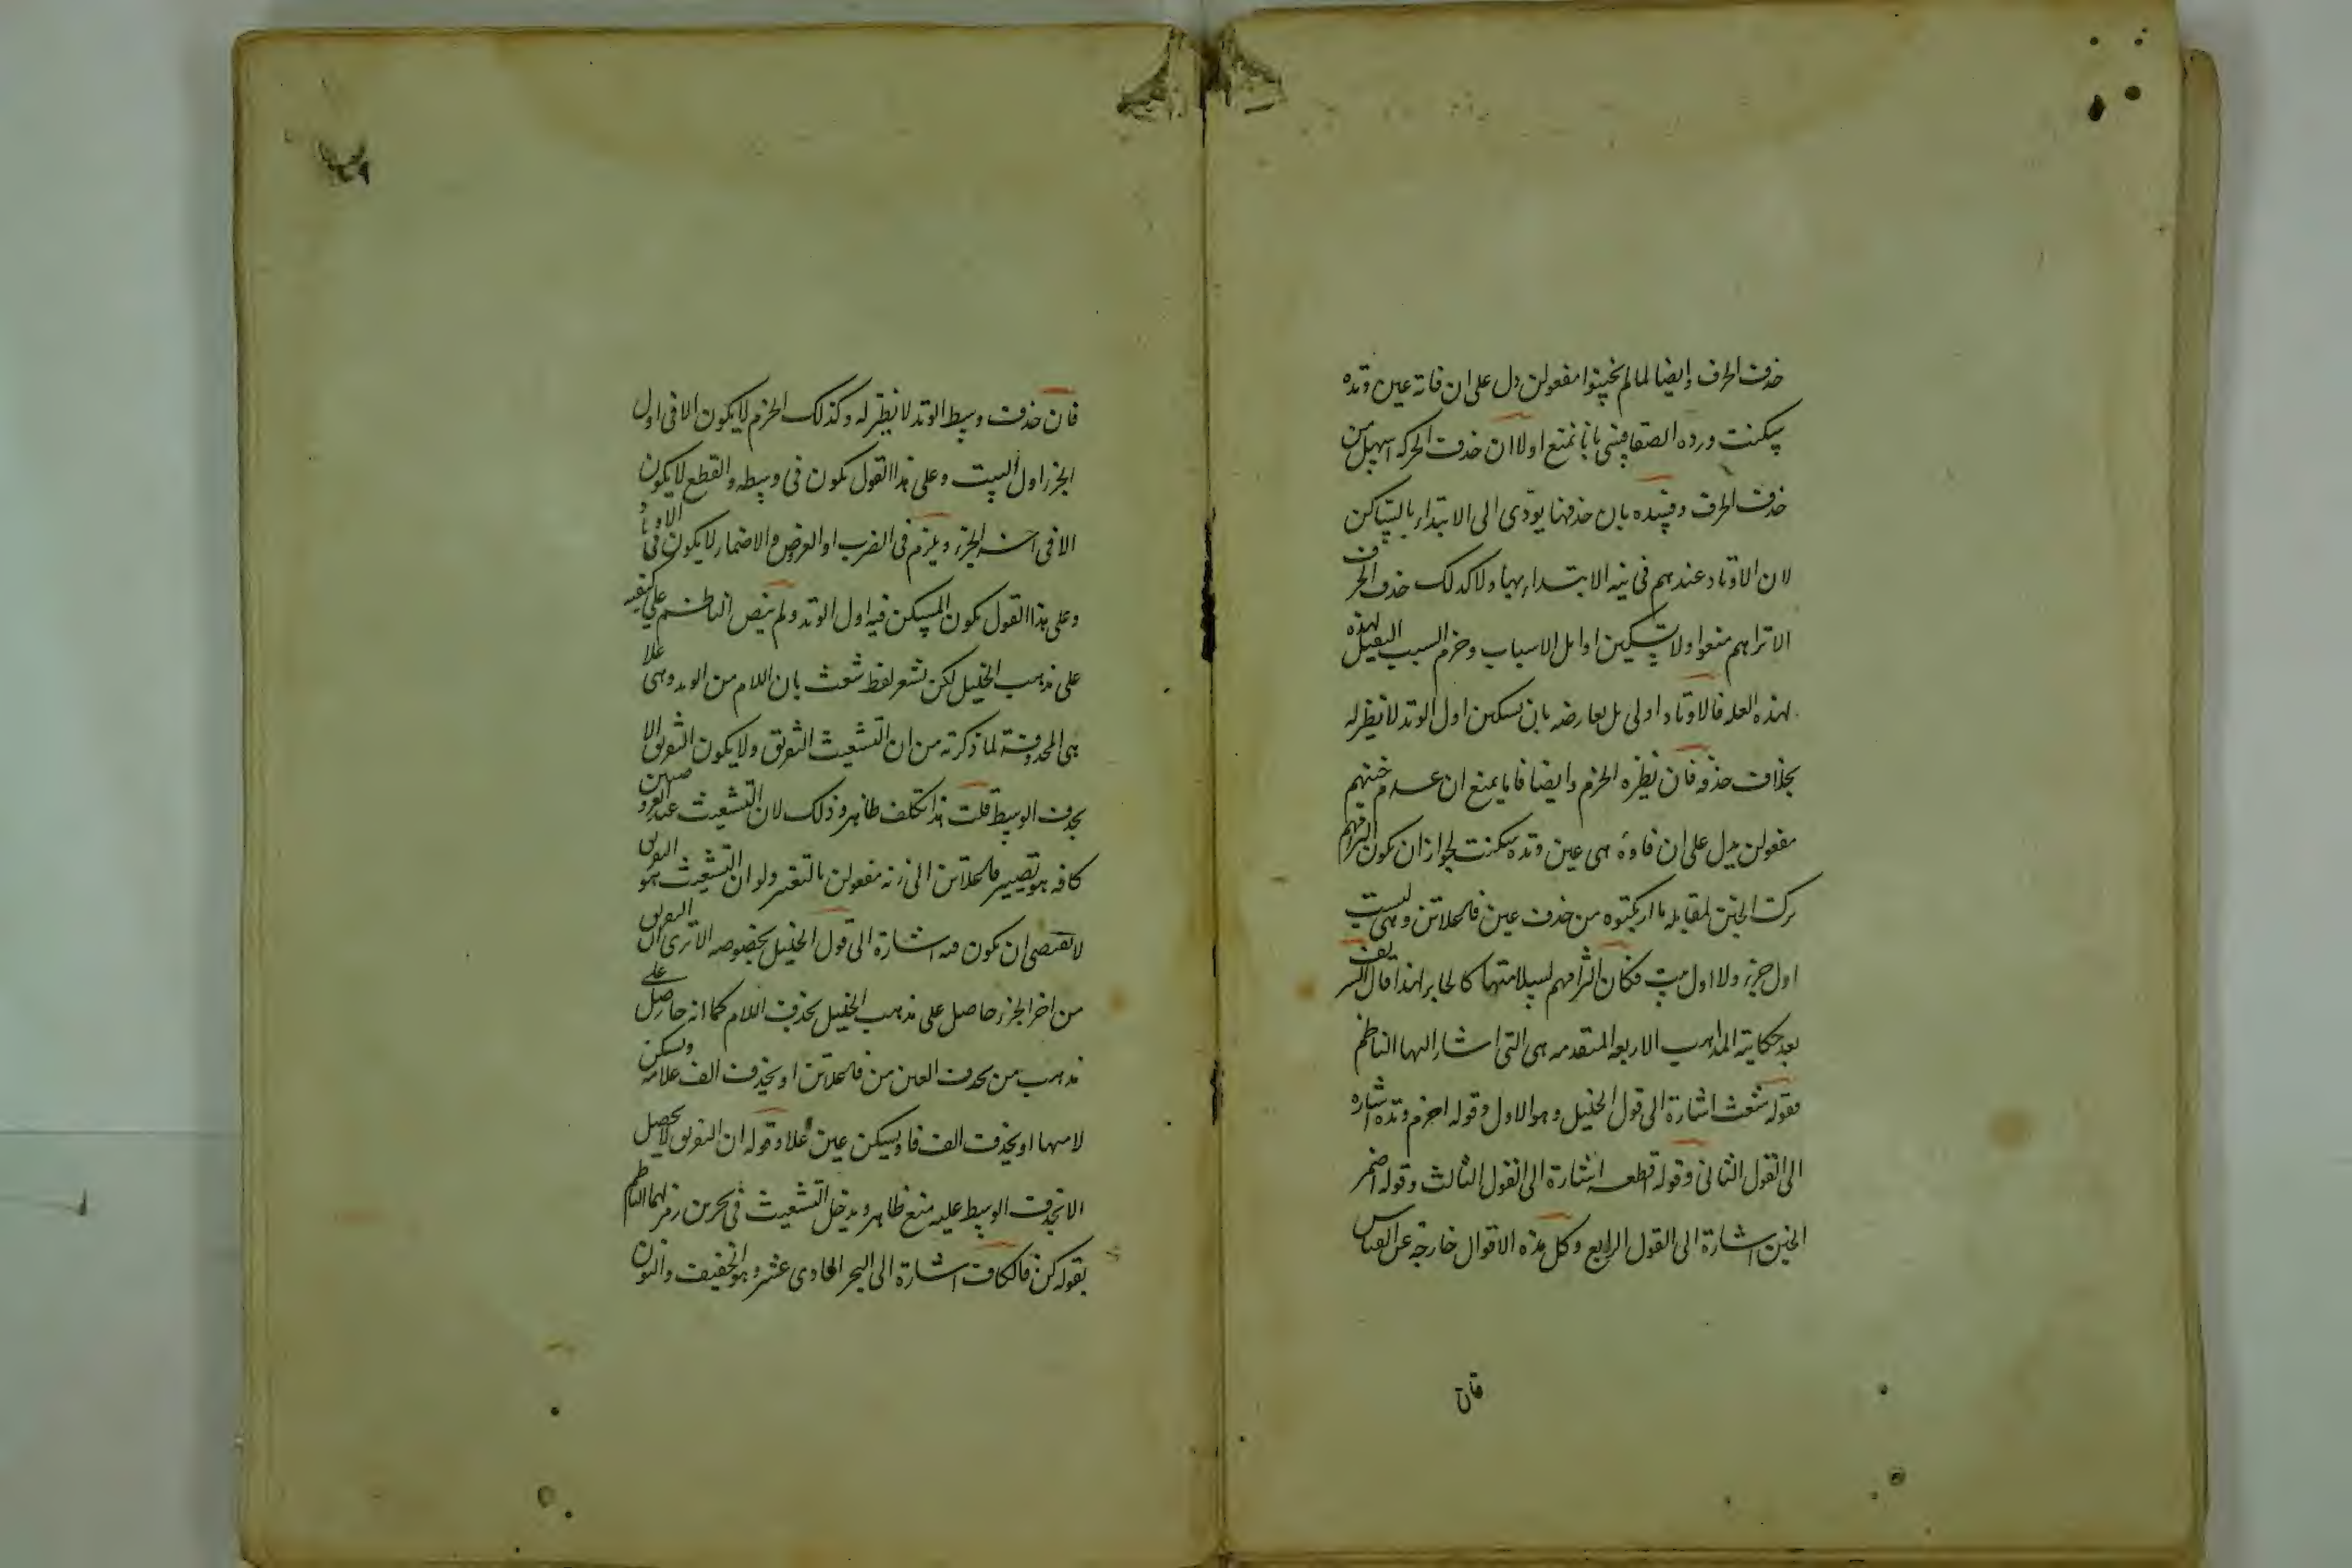 حذف الحرف وايضا لما لم يخبنوا مفعولن دل على ان فاته عين وتده
سكنت ورده الصفاقسى بانا نمنع اولا ان حذف الحركه اسهل من
حذف الحرف وقيده بان حذفها يودى الى الابتداء بالساكن
لان الاوتاد عندهم فى نيه الابتداء بها ولا كذلك حذف الحرف
الا تراهم منعوا ولا تسكين اوايل الاسباب وخرم السبب الثقيل لهذه
لهذه العله فالاوتاد اولى بل يعارضه بان تسكين اول الوتد لا نظير له
بخلاف حذفه فان نظيره الخرم وايضا فانا نمنع ان عدم خبنهم
مفعولن يدل على ان فاوه هى عين وتده سكنت لجواز ان يكون التزامهم
ترك الخبن لمقابله ما ارتكبوه من حذف عين فاعلاتن وهى ليست
اول جزء ولا اول بيت فكان التزامهم لسلامتها كالجابر لهذا قال الشريف
بعد حكاية المذاهب الاربعه المتقدمه هى التى اشار اليها الناظم
فقوله شعث اشارة الى قول الخليل وهو الاول وقوله اخرم وتده اشاره
الى القول الثانى وقوله قطعه اشارة الى القول الثالث وقوله اضمر
الخبن اشارة الى القول الرابع وكل هذه الاقوال خارجه عن القياس
فان
فان حذف وسط الوتد لا نظير له وكذلك الخرم لا يكون الا فى اول
الجزء اول البيت وعلى هذا القول يكون فى وسطه والقطع لا يكون
الا فى اخر الجزء ويلزم فى الضرب او العروض والاضمار لا يكون فى الاوتاد
وعلى هذا القول يكون المسكن فيه اول الوتد ولم ينص الناظم على كيفيه
على مذهب الخليل لكن يشعر لفظ شعث بان اللام من الوتد وهى علا
هى المحذوفة لما ذكرته من ان التشعيث التفريق ولا يكون التفريق الا
بحذف الوسط قلت هذا تكلف ظاهر وذلك لان التشعيث عند العروضيين
كافه هو تصيير فاعلاتن الى زنه مفعولن بالتغيير ولو ان التشعيث هو التفريق
لا يقتضى ان يكون فيه اشارة الى قول الخليل بخصوصه الا ترى ان التفريق
من اخر الجزء حاصل على مذهب الخليل بحذف اللام كما انه حاصل على
مذهب من يحذف العين من فاعلاتن او يحذف الف علامه ويسكن
لامها او يحذف الف فا ويسكن عين علا وقوله ان التفريق لا يحصل
الا بحذف الوسط عليه منع ظاهر ويدخل التشعيث فى بحرين رمز لهما الناظم
بقوله كن فالكاف اشارة الى البحر الحادى عشر وهو الخفيف والنون